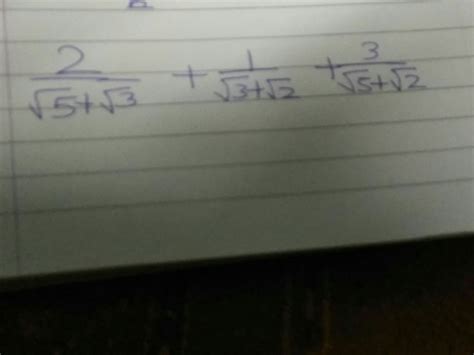 2/(√5+√3) + 1/(√3+√2) + 3/(√5+√2)